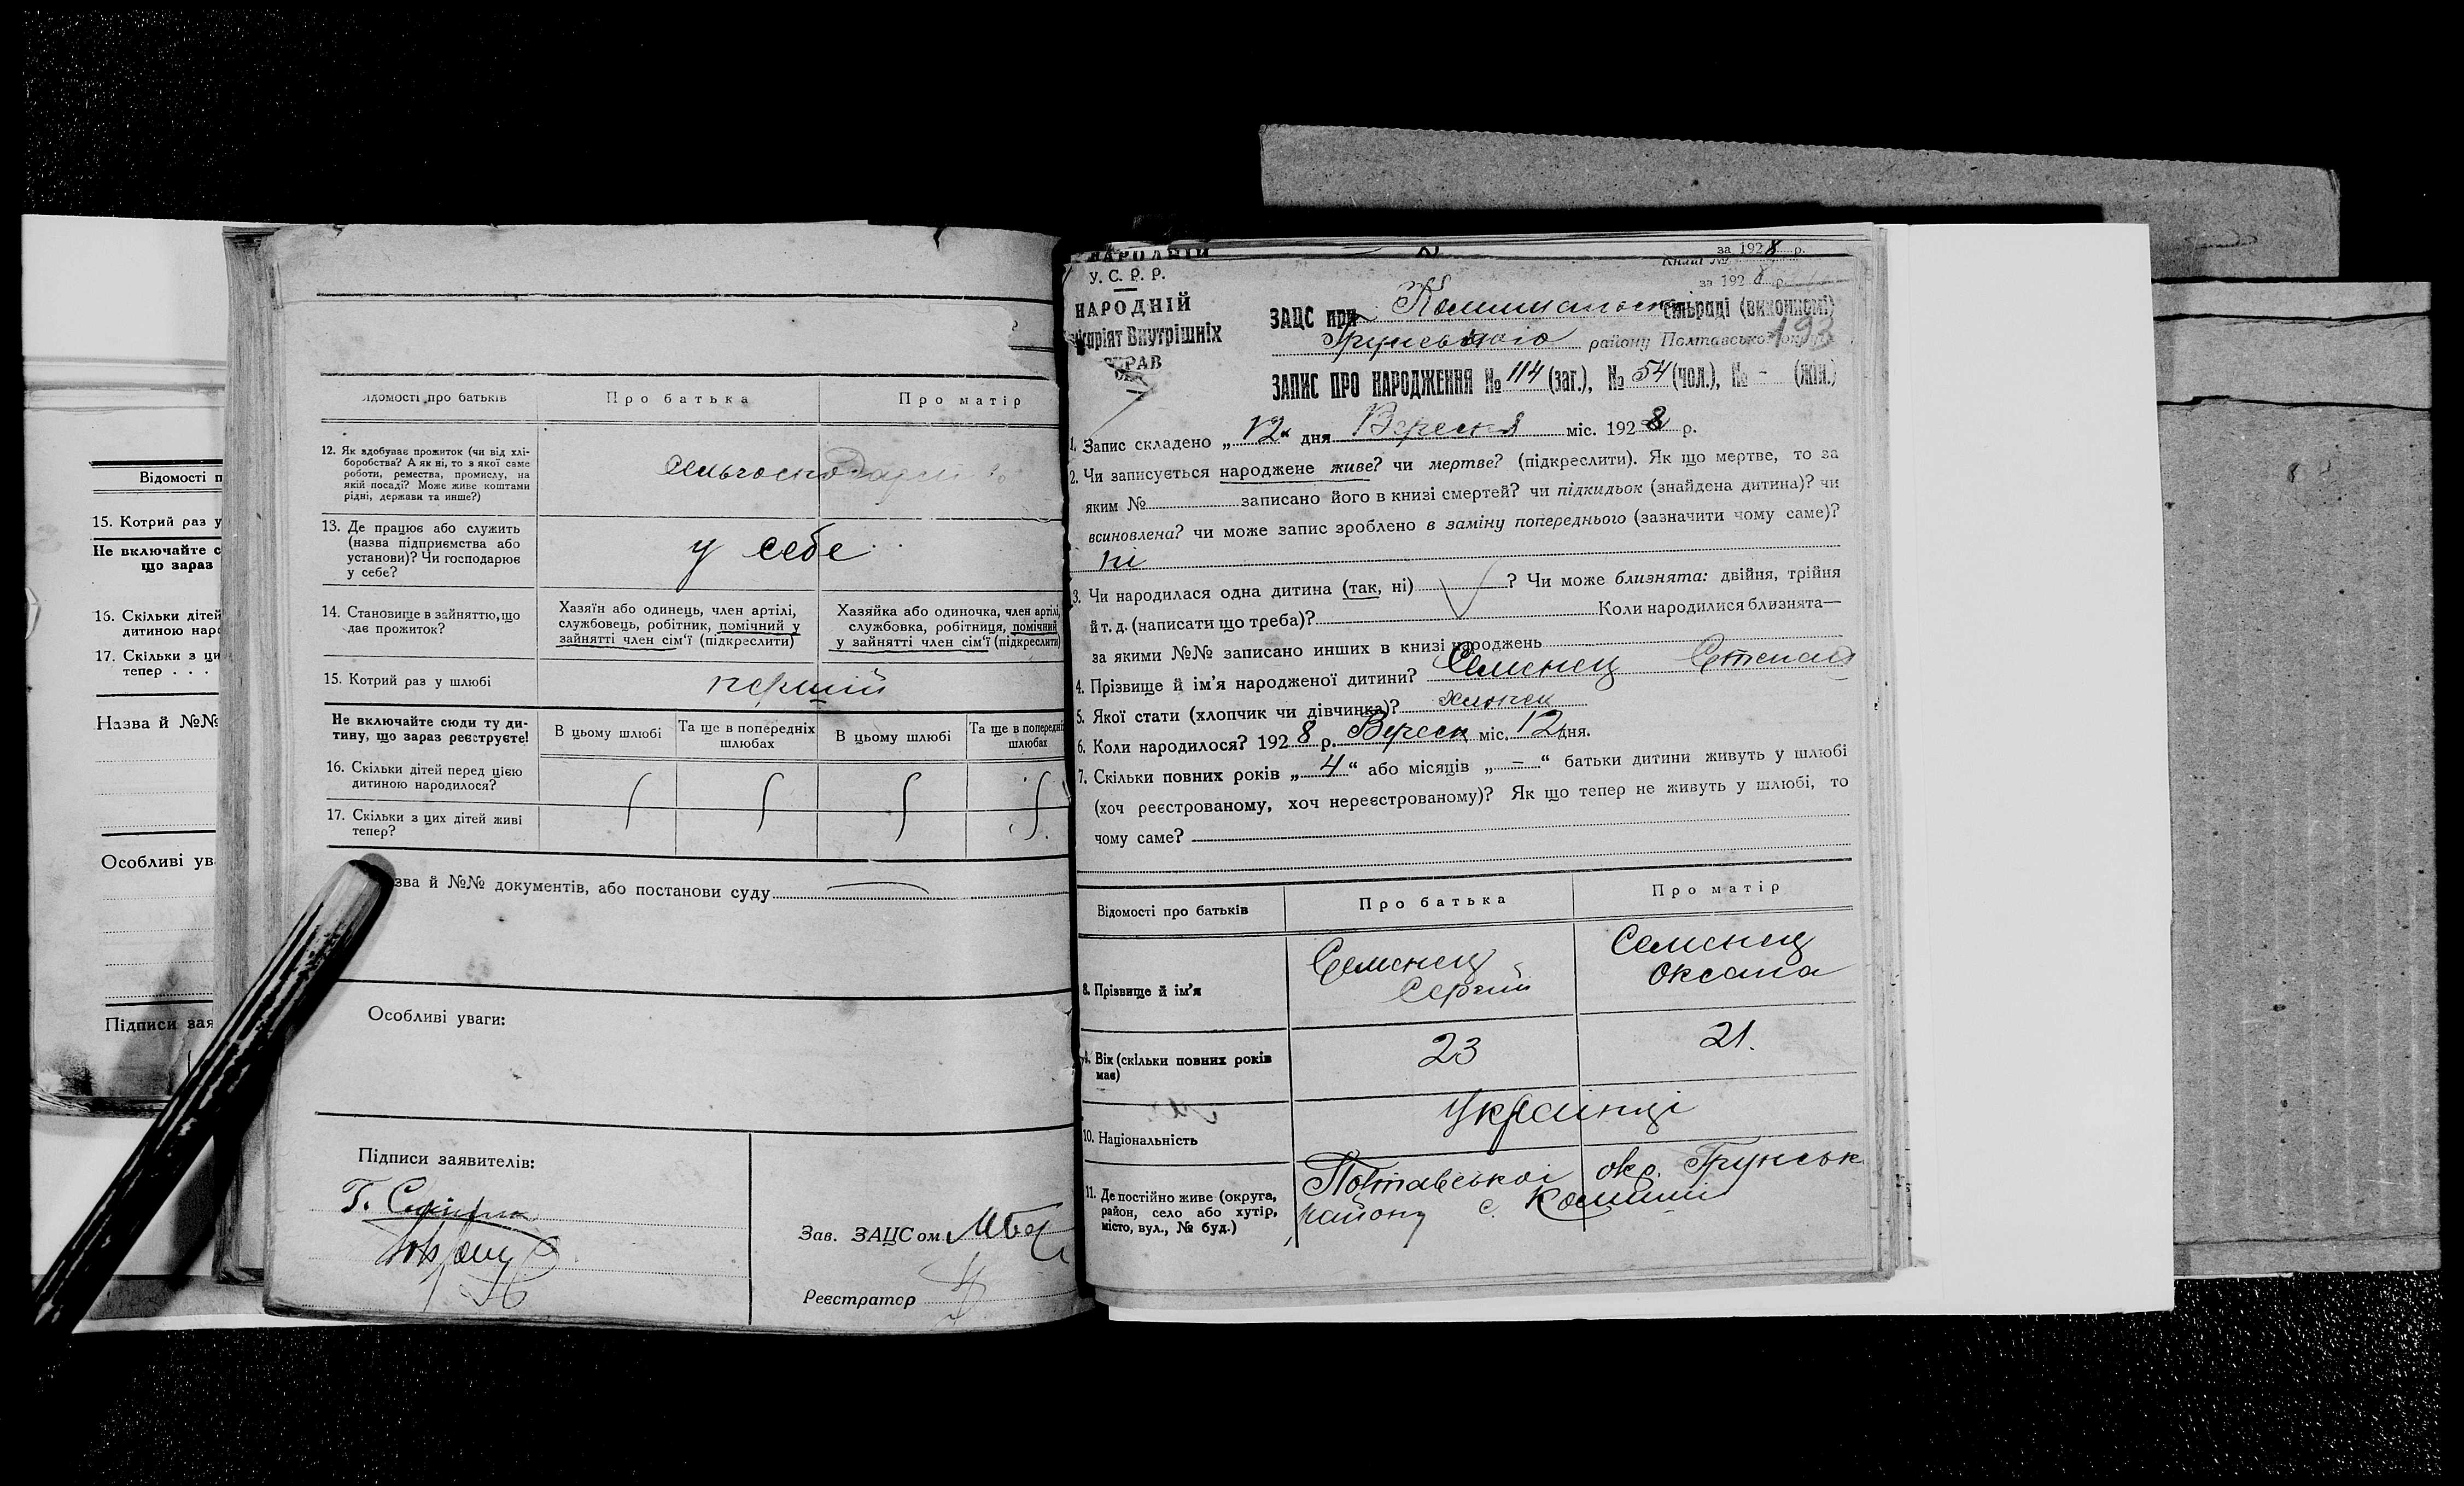 Відомості п
15. Котрий раз у
Не включайте с
що зараз
16. Скільки дітей
дитиною наро
17. Скільки з ци
тепер . . .
Назва й №№
Особливі ув
Підписи зая
ідомості про батьків
Про батька
Про матір
12. Як здобуває прожиток (чи від хлі-
боробства? А як ні, то з якої саме
роботи, ремества, промислу, на
якій посаді? Може живе коштами
рідні, держави та инше?)
13. Де працює або служить
(назва підприємства або
установи)? Чи господарює
у себе?
у себе
14. Становище в зайняттю, що
дає прожиток?
Хазяїн або одинець, член артілі,
службовець, робітник, помічний у
зайнятті член сім'ї (підкреслити)
Хазяйка або одиночка, член артілі,
службовка, робітниця, помічний
у зайнятті член сім'ї (підкреслити)
15. Котрий раз у шлюбі
перший
Не включайте сюди ту ди-
тину, що зараз реєструєте!
В цьому шлюбі
Та ще в попередніх
шлюбах
В цьому шлюбі
Та ще в попередні
шлюбах
16. Скільки дітей перед цією
дитиною народилося?
17. Скільки з цих дітей живі
тепер?
зва й №№ документів, або постанови суду
Особливі уваги:
Підписи заявителів:
Зав. ЗАЦС ом
Реєстратор
НАРОДНІЙ
за 1928 р.
У. С. Р. Р.
Книга №
за 192 р.
НАРОДНІЙ
ЗАЦС при сільраді (виконкомі)
існріят Внутрішніх
193
району Полтавської
СПРАВ
ЗАПИС ПРО НАРОДЖЕННЯ № 114 (заг.), № 54 (чол.), № - (жін.)
1. Запис складено „12“ дня Вересня міс. 1928 р.
2. Чи записується народжене живе? чи мертве? (підкреслити). Як що мертве, то за
яким № записано його в книзі смертей? чи підкидьок (знайдена дитина)? чи
всиновлена? чи може запис зроблено в заміну попереднього (зазначити чому саме)?
ні
3. Чи народилася одна дитина (так, ні) ? Чи може близнята: двійня, трійня
й т. д. (написати що треба)? Коли народилися близнята—
за якими №№ записано инших в книзі народжень
4. Прізвище й ім'я народженої дитини? Семенец Степан
5. Якої стати (хлопчик чи дівчинка)?
6. Коли народилося? 1928 р. Вересн міс. 12 дня.
7. Скільки повних років „4“ або місяців „=“ батьки дитини живуть у шлюбі
(хоч реєстрованому, хоч нереєстрованому)? Як що тепер не живуть у шлюбі, то
чому саме?
Відомості про батьків
Про батька
Про матір
8. Прізвище й ім'я
Семенец
Сергій
Семенец
Оксана
9. Вік (скільки повних років
має)
23
21.
10. Національність
Українці
11. Де постійно живе (округа,
район, село або хутір,
місто, вул., № буд.)
Полтавської окр. Грунськ
району с. Комиші